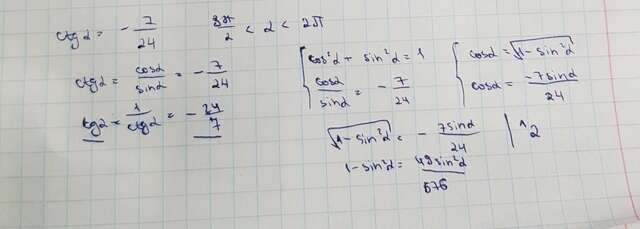 ctgα = - 7/24 3π/2 < α < 2π
ctgα = cosα/sinα = - 7/24
tgα = 1/ctgα = - 24/7
{ cos²α + sin²α = 1
cosα/sinα = - 7/24
{ cosα = √1-sin²α
cosα = -7sinα/24
√1-sin²α = - 7sinα/24 | ^2
1-sin²α = 49sin²α/576